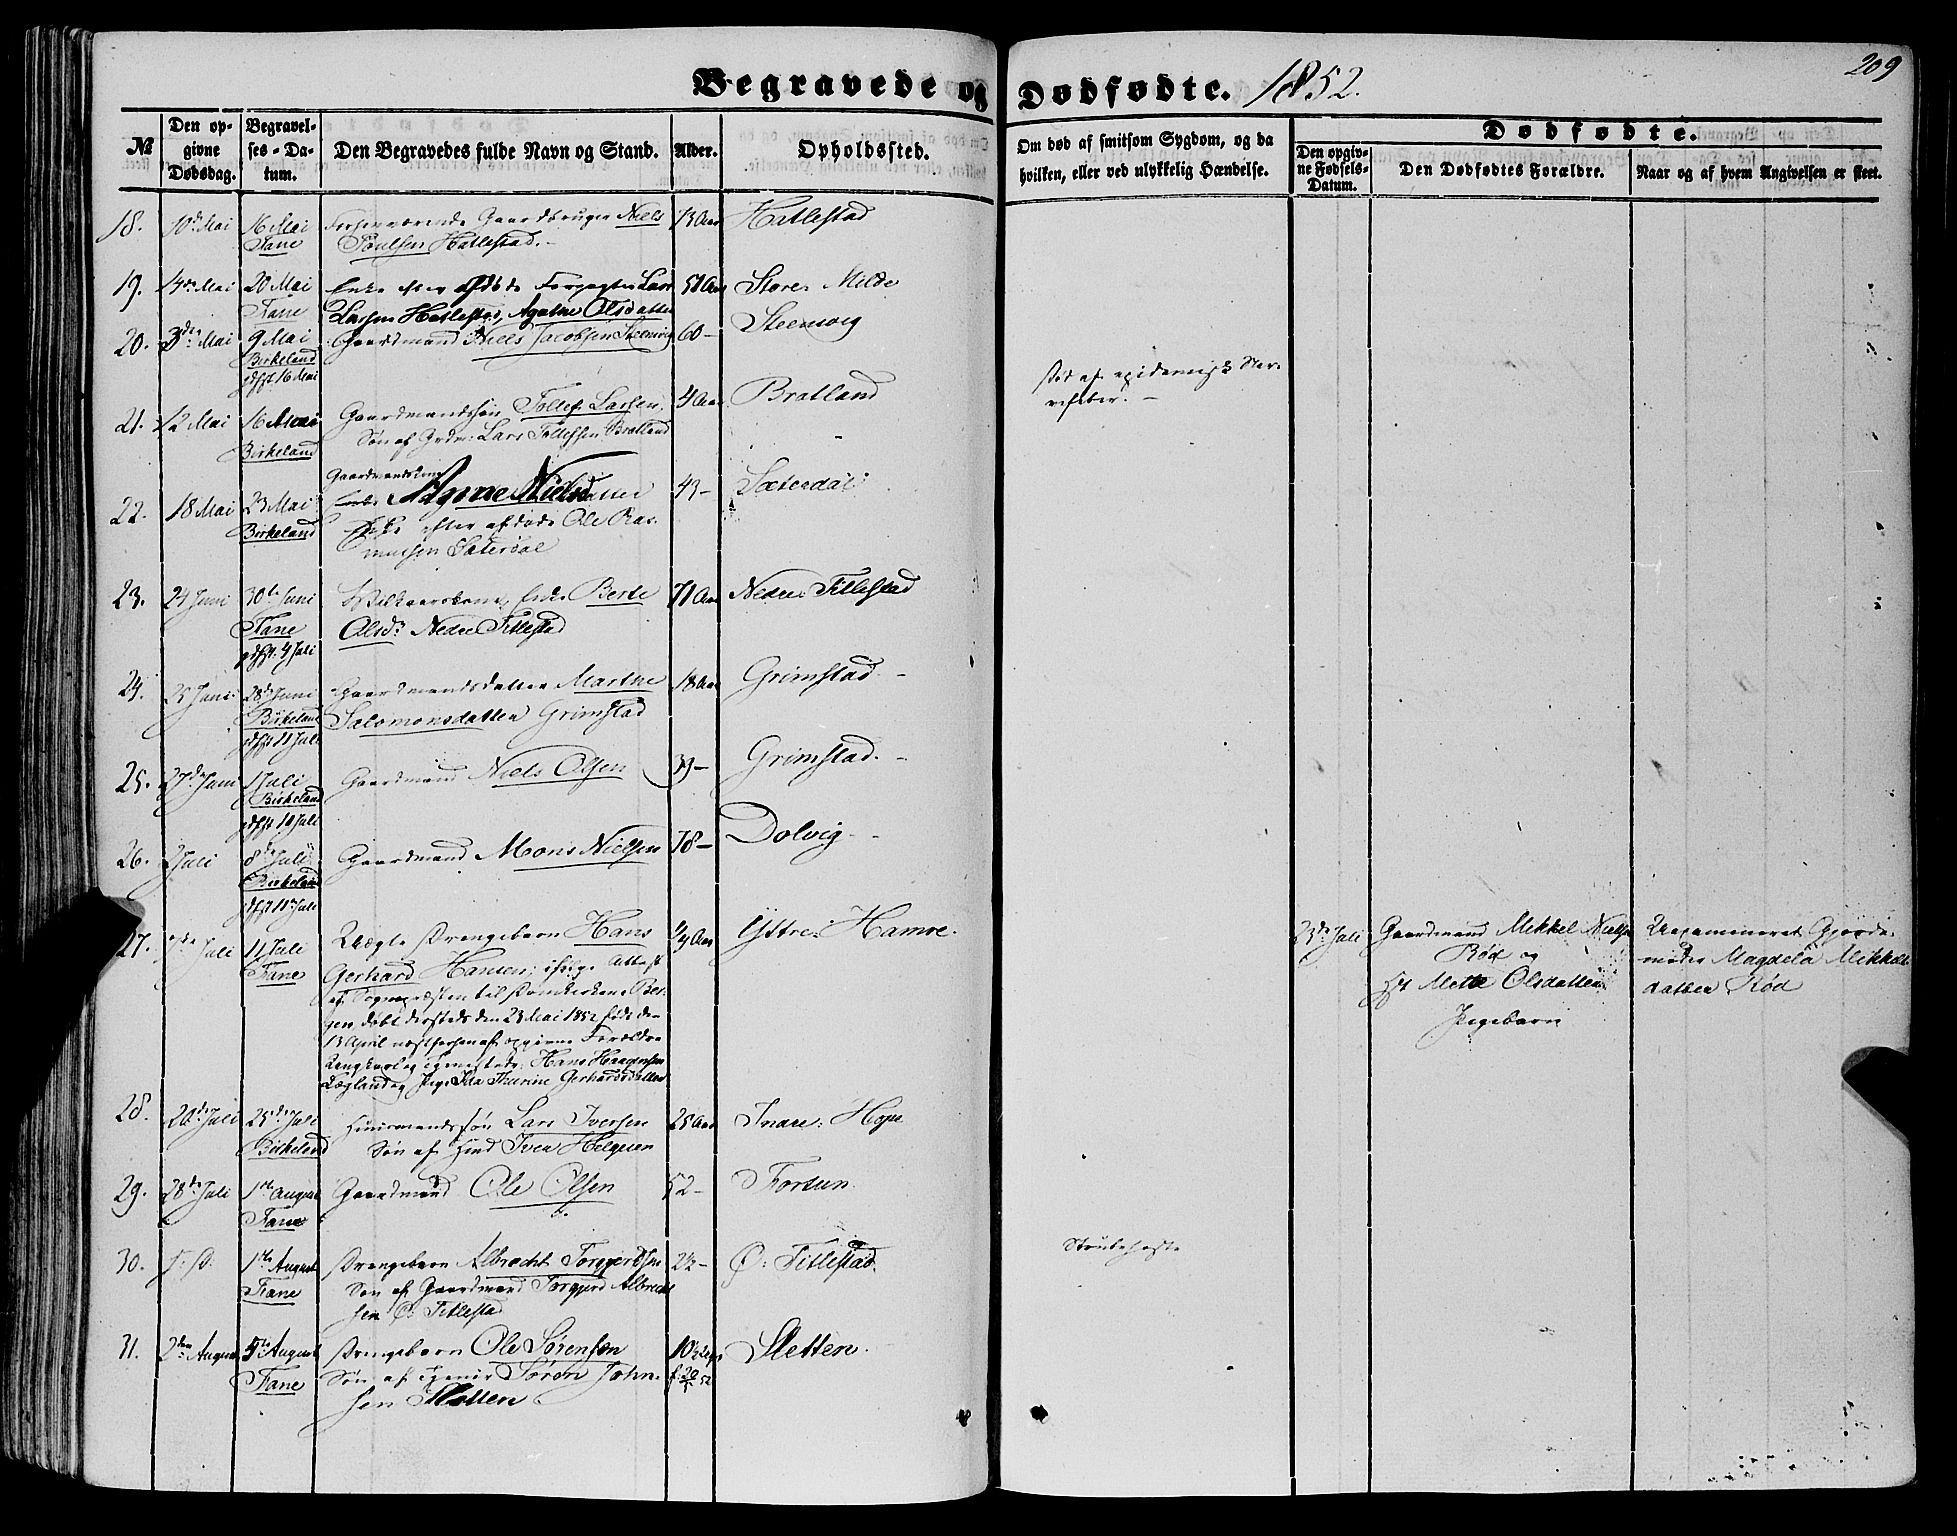 Begravede og Dødfødte. 1852.
209
№
Den opgivne Dødsdag.
Begravelses-Datum.
Den Begravedes fulde Navn og Stand.
Alder.
Opholdssted.
Om død af smitsom Sygdom, og da hvilken, eller ved ulykkelig Hændelse.
Dødfødte.
Den opgivne Fødsels-Datum.
Den Dødfødtes Forældre.
Naar og af hvem Angivelsen er skeet.
18. 10de Mai 16 Mai Forhenværende Gaardbruger Niels 73 Aar Hatlestad
Fane Poulsen Hatlestad.
19. 14de Mai 20 Mai Enke efter afdøde Forpagter Lars 51 Aar Store Milde
Fane Larsen Hatlestad, Agathe Olsdatter
20. 3de Mai 9 Mai Gaardmand Niels Jacobsen Steensvig 60 - Steensvig
Birkeland
16 Mai
21. 12 Mai 16 Mai Gaardmandssøn Tollef Larsen. 4 Aar Bratland
død af epidemisk
Birkeland Søn af Grdm: Lars Tollefsen Bratland
Gaardmandskone
22. 18 Mai 23 Mai Enke Magrete Nielsdatter 43 - Sæterdal
Birkeland Enke efter afdøde Ole Ras-
musen Sæterdal
23. 24 Juni 30te Juni Vilkaarskone, Enke Berte 71 Aar Nedre Titlestad
Fane Olsdr Nedre Titlestad
4 Juli
24. 25 Juni 28de Juni Gaardmandsdatter Marthe 18 Aar Grimstad -
Birkeland Salomonsdatter Grimstad
11 Juli
25. 27de Juni 1 Juli Gaardmand Niels Olsen 39 - Grimstad. -
Birkeland
26. 2 Juli 8de Juli Gaardmand Mons Nielsen 78 - Dolvig -
Birkeland
11 Juli
27. 7de Juli 11 Juli Uægte Drengebarn Hans 1/4 Aar Ytre: Hamre.
Fane Gerhard Hansen; ifølge Attest
af Sognepræsten til Domkirken i Ber-
gen, døbt dersteds den 23 Mai 1852, født den
13 April næstforhen af opgivne Forældre
Ungkarl og Hans Haagensen
og Pige Ida Thrine Gerhardsdatter
23de Juli Gaardmand Mikkel Nielsen
Rød og
Mette Olsdatter
Pigebarn
Uexamineret Gjorde-
moder Magdela Mikkels-
datter Rød
28. 20de Juli 25de Juli Huusmandssøn Lars Iversen 25 Aar Indre: Hope
Birkeland Søn af Iver Helgesen
29. 28de Juli 1ste August Gaardmand Ole Olsen 52 - Forsun.
Fane
30. 1ste August Drengebarn Albrecht Torgjerdsen 2½ - Ø: Titlestad.
Fane Søn af Gaardmand Torgjerd Albrecht-
sen Ø: Titlestad
31. 2den August 5te August Drengebarn Ole Sørensen Sletten.
Fane Søn af Søren John-
sen Sletten